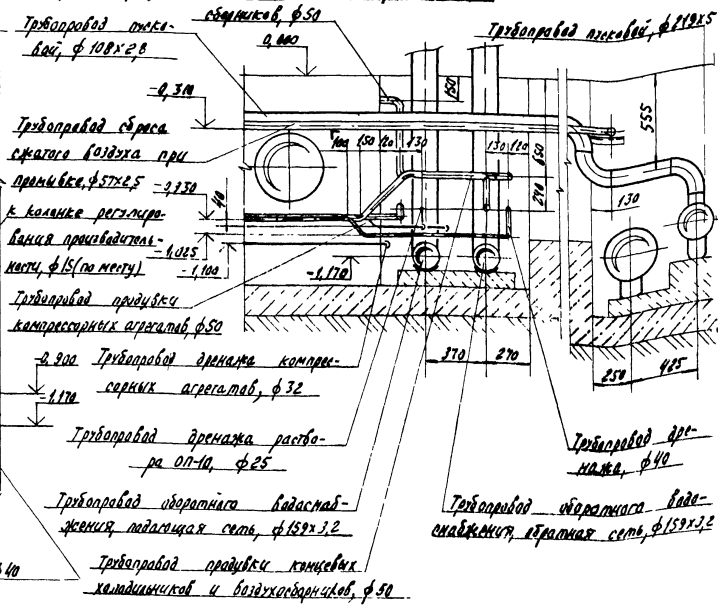 сборников, ф50
Трубопровод пуско-
вой, ф108х2,8
0,000
Трубопровод пусковой, ф219х5
-0,310
150
555
Трубопровод сброса
сжатого воздуха при
промывке, ф57х2,5
100 150 120 130
130 120
650
240
130
-0,930
40
к колонке регулиро-
вания производитель-
ности, ф15(по месту)
-1,025
-1,100
-1,170
Трубопровод продувки
компрессорных агрегатов, ф50
370 270
250 425
-0,900
-1,170
Трубопровод дренажа компрес-
сорных агрегатов, ф32
Трубопровод дренажа раство-
ра ОП-10, ф25
Трубопровод дре-
нажа, ф40
Трубопровод оборотного водоснаб-
жения, подающая сеть, ф159х3,2
Трубопровод оборотного водо-
снабжения, обратная сеть, ф159х3,2
Трубопровод продувки концевых
холодильников и воздухосборников, ф50
40